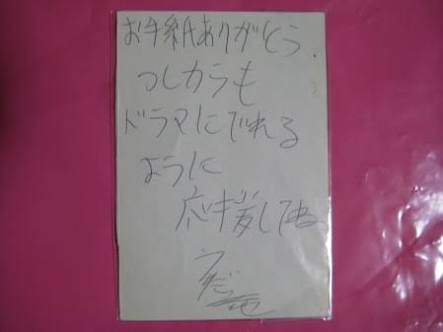 お手紙ありがとう.
つしからも
ドラマにでれる
ように
応募してね